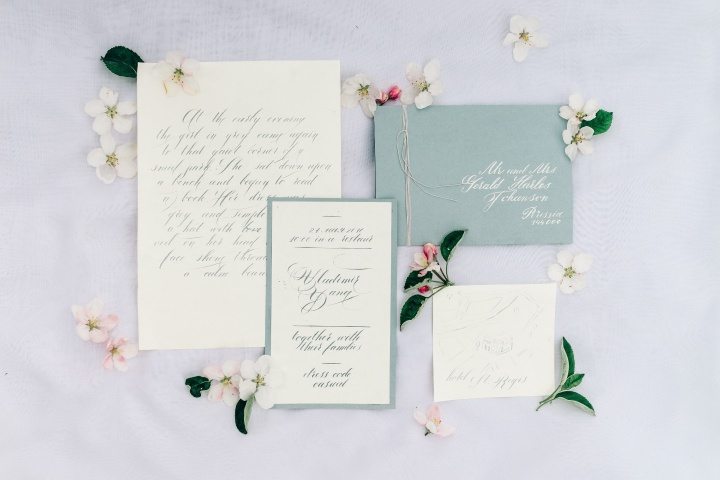 At the early evening
the girl in grey came again
to that quiet corner of a
small park. She sat down upon
a bench and began to read
a book. Her dress was
grey and simple
a hat with
veil on her head
face shone through
a calm
10.00 in a restaur
Wladimir
Yang
together with
their families
dress code
casual
Mr and Mrs
Gerald Harles
Johanson
Russia
144000
hotel of